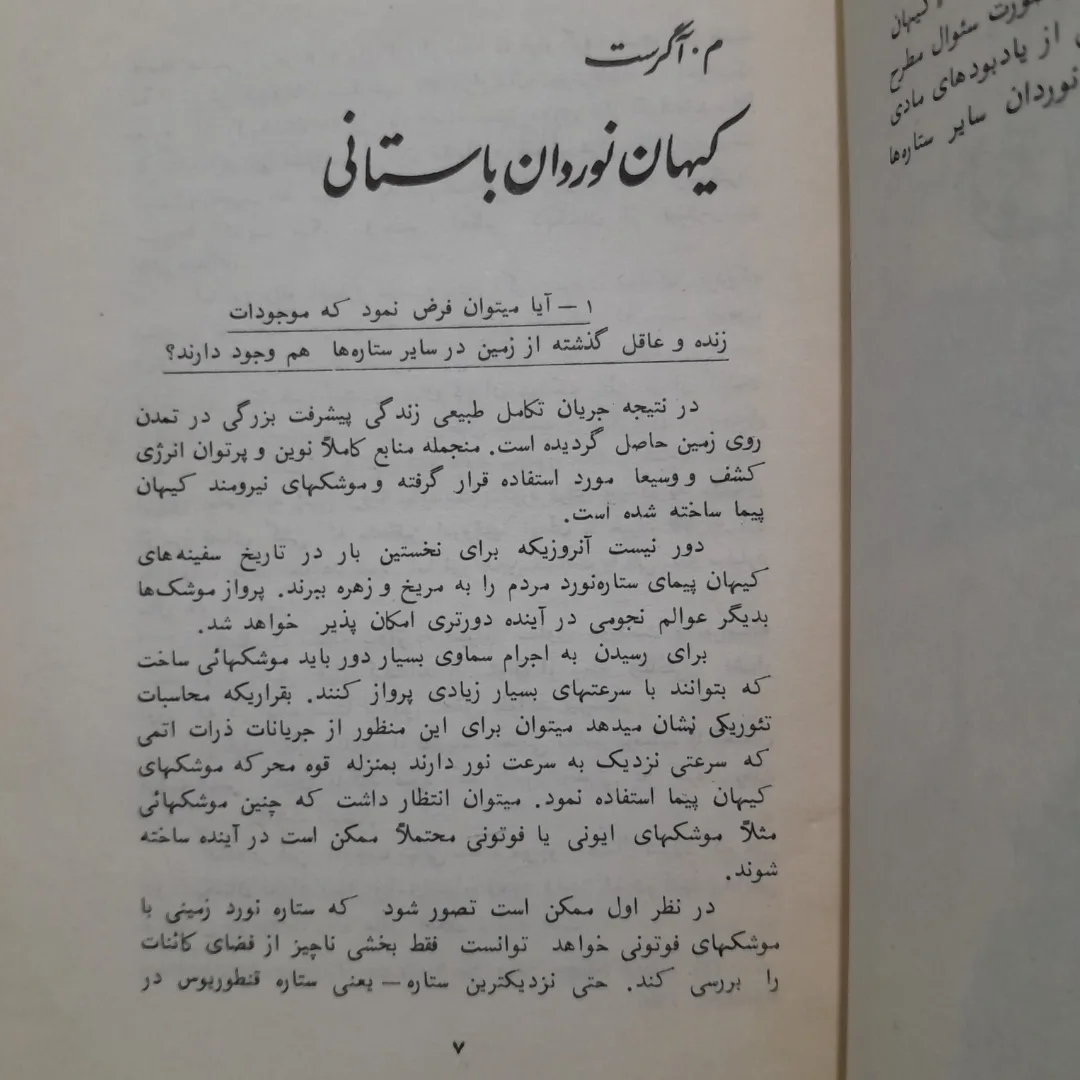 م. آگرست
کیهان نوردان باستانی
۱ – آیا میتوان فرض نمود که موجودات
زنده و عاقل گذشته از زمین در سایر ستاره‌ها هم وجود دارند؟
در نتیجه جریان تکامل طبیعی زندگی پیشرفت بزرگی در تمدن
روی زمین حاصل گردیده است. منجمله منابع کاملاً نوین و پرتوان انرژی
کشف و وسیعا مورد استفاده قرار گرفته و موشکهای نیرومند کیهان
پیما ساخته شده است.
دور نیست آنروزیکه برای نخستین بار در تاریخ سفینه‌های
کیهان پیمای ستاره‌نورد مردم را به مریخ و زهره ببرند. پرواز موشک‌ها
بدیگر عوالم نجومی در آینده دورتری امکان پذیر خواهد شد.
برای رسیدن به اجرام سماوی بسیار دور باید موشکهائی ساخت
که بتوانند با سرعتهای بسیار زیادی پرواز کنند. بقراریکه محاسبات
تئوریکی نشان میدهد میتوان برای این منظور از جریانات ذرات اتمی
که سرعتی نزدیک به سرعت نور دارند بمنزله قوه محرکه موشکهای
کیهان پیما استفاده نمود. میتوان انتظار داشت که چنین موشکهائی
مثلاً موشکهای ایونی یا فوتونی محتملاً ممکن است در آینده ساخته
شوند.
در نظر اول ممکن است تصور شود که ستاره نورد زمینی با
موشکهای فوتونی خواهد توانست فقط بخشی ناچیز از فضای کائنات
را بررسی کند. حتی نزدیکترین ستاره – یعنی ستاره قنطوریوس در
۷
کیهان
صورت سئوال مطرح
از یادبودهای مادی
نوردان سایر ستاره‌ها